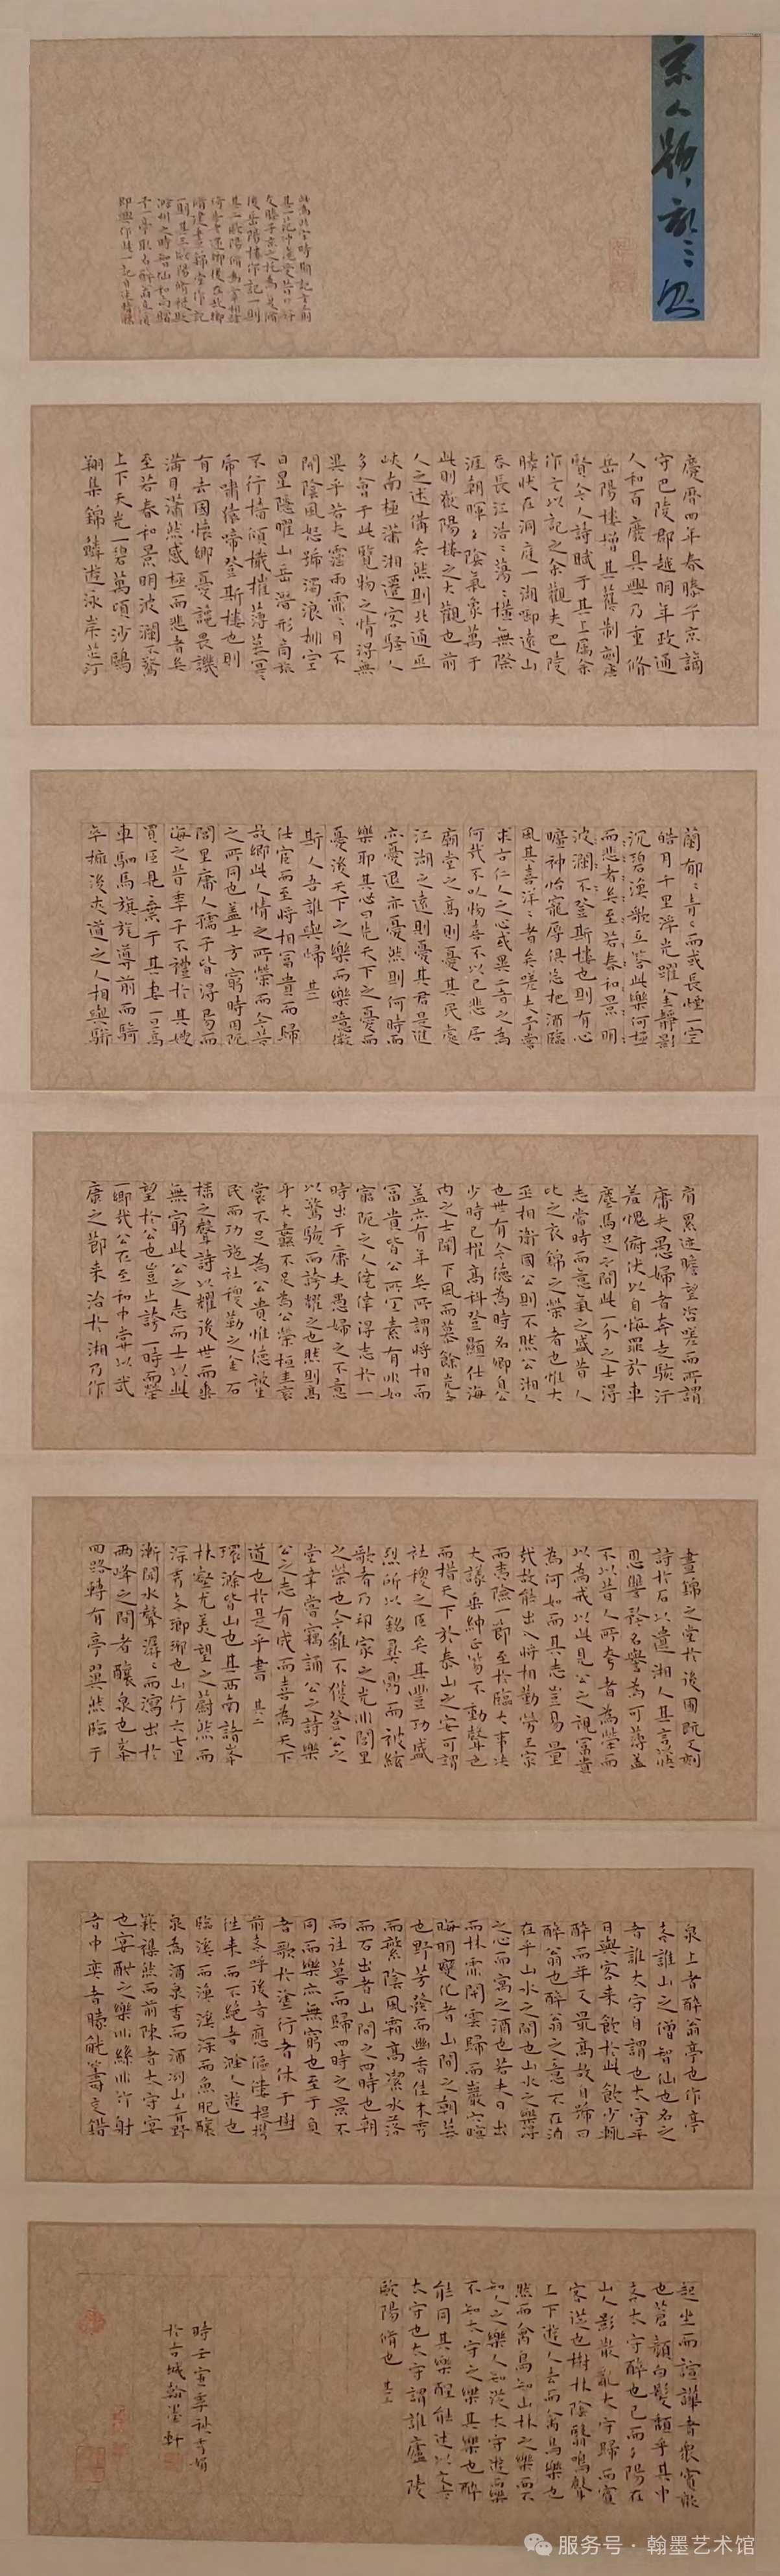 宋人題記三則
慶曆四年春滕子京謫
守巴陵郡越明年政通
人和百廢具興乃重修
岳陽樓增其舊制刻唐
賢今人詩賦于其上屬余
作文以記之余觀夫巴陵
勝狀在洞庭一湖啣遠山
吞長江浩〻蕩〻橫無際
涯朝暉夕陰氣象萬千
此則岳陽樓之大觀也前
人之述備矣然則北通巫
峽南極瀟湘遷客騷人
多會于此覽物之情得無
異乎若夫霪雨霏〻日不
開陰風怒號濁浪排空
日星隱曜山岳潛形商旅
不行檣傾楫摧薄暮冥〻
虎嘯猿啼登斯樓也則
有去國懷鄉憂讒畏譏
滿目蕭然感極而悲者矣
至若春和景明波瀾不驚
上下天光一碧萬頃沙鷗
翔集錦鱗遊泳岸芷汀
蘭郁〻青〻而或長煙一空
皓月千里浮光躍金靜影
沉碧漁歌互答此樂何極
而悲者矣至若春和景明
波瀾不登斯樓也則有心
曠神怡寵辱俱忘把酒臨
風其喜洋〻者矣嗟夫予嘗
求古仁人之心或異二者之為
何哉不以物喜不以己悲居
廟堂之高則憂其民處
江湖之遠則憂其君是進
亦憂退亦憂然則何時而
樂耶其必曰先天下之憂而
憂後天下之樂而樂噫微
斯人吾誰與歸 其一
仕宦而至將相富貴而歸
故鄉此人情之所榮而今昔
之所同也蓋士方窮時困阨
閭里庸人孺子皆得易而
侮之昔季子不禮於其嫂
買臣見棄于其妻一旦高
車駟馬旗旄導前而騎
卒擁後夾道之人相與駢
肩累迹瞻望咨嗟而所謂
庸夫愚婦者奔走駭汗
羞愧俯伏以自悔罪於車
塵馬足之間此一介之士得
志當時而意氣之盛昔人
比之衣錦之榮者也惟大
丞相衛國公則不然公湘人
也世有令德為時名卿自公
少時已擢高科登顯仕海
內之士聞下風而慕餘光
蓋亦有年矣所謂將相而
富貴皆公所宜素有非如
窮阨之人僥倖得志於一
時出于庸夫愚婦之不意
以驚駭而誇耀之也然則高
牙大纛不足為公榮桓圭袞
裳不足為公貴惟德被生
民而功施社稷勒之金石
播之聲詩以耀後世而垂
無窮此公之志而士以此
望於公也豈止誇一時而榮
一鄉哉公在至和中嘗以武
康之節來治於湘乃作
晝錦之堂於後圃既又刻
詩於石以遺湘人其言以快
恩讐矜名譽為可薄蓋
不以昔人所夸者為榮而
以為戒以此見公之視富貴
為何如而其志豈易量
哉故能出入將相勤勞王家
而夷險一節至於臨大事決
大議垂紳正笏不動聲色
而措天下於泰山之安可謂
社稷之臣矣其豐功盛
烈所以銘彝鼎而被絃
歌者乃邦家之光非閭里
之榮也余雖不獲登公之
堂幸嘗竊誦公之詩樂
公之志有成而喜為天下
道也於是乎書 其二
環滁皆山也其西南諸峯
林壑尤美望之蔚然而
深秀者瑯琊也山行六七里
漸聞水聲潺〻而瀉出於
兩峰之間者釀泉也峯
回路轉有亭翼然臨于
泉上者醉翁亭也作亭
者誰山之僧智仙也名之
者誰太守自謂也太守
日與客來飲於此飲少輒
醉而年又最高故自號曰
醉翁也醉翁之意不在酒
在乎山水之間也山水之樂得
之心而寓之酒也若夫日出
而林霏開雲歸而巖穴暝
晦明變化者山間之朝暮
也野芳發而幽香佳木秀
而繁陰風霜高潔水落
而石出者山間之四時也朝
而往暮而歸四時之景不
同而樂亦無窮也至于負
者歌於塗行者休于樹
前者呼後者應傴僂提攜
往來而不絕者滁人遊也
臨溪而漁溪深而魚肥釀
泉為酒泉香而酒冽山肴野
蔌襍然而前陳者太守宴
也宴酣之樂非絲非竹射
者中奕者勝觥籌交錯
起坐而諠譁者衆賓懽
也蒼顏白髮頹乎其中
者太守醉也已而夕陽在
山人影散亂太守歸而賓
客從也樹林陰翳鳴聲
上下遊人去而禽鳥樂也
然而禽鳥知山林之樂而不
知人之樂人知從太守遊而樂
不知太守之樂其樂也醉
能同其樂醒能述以文者
太守也太守謂誰廬陵
歐陽修也 其三
時壬寅年
於古城翰墨軒
服务号·翰墨艺术馆